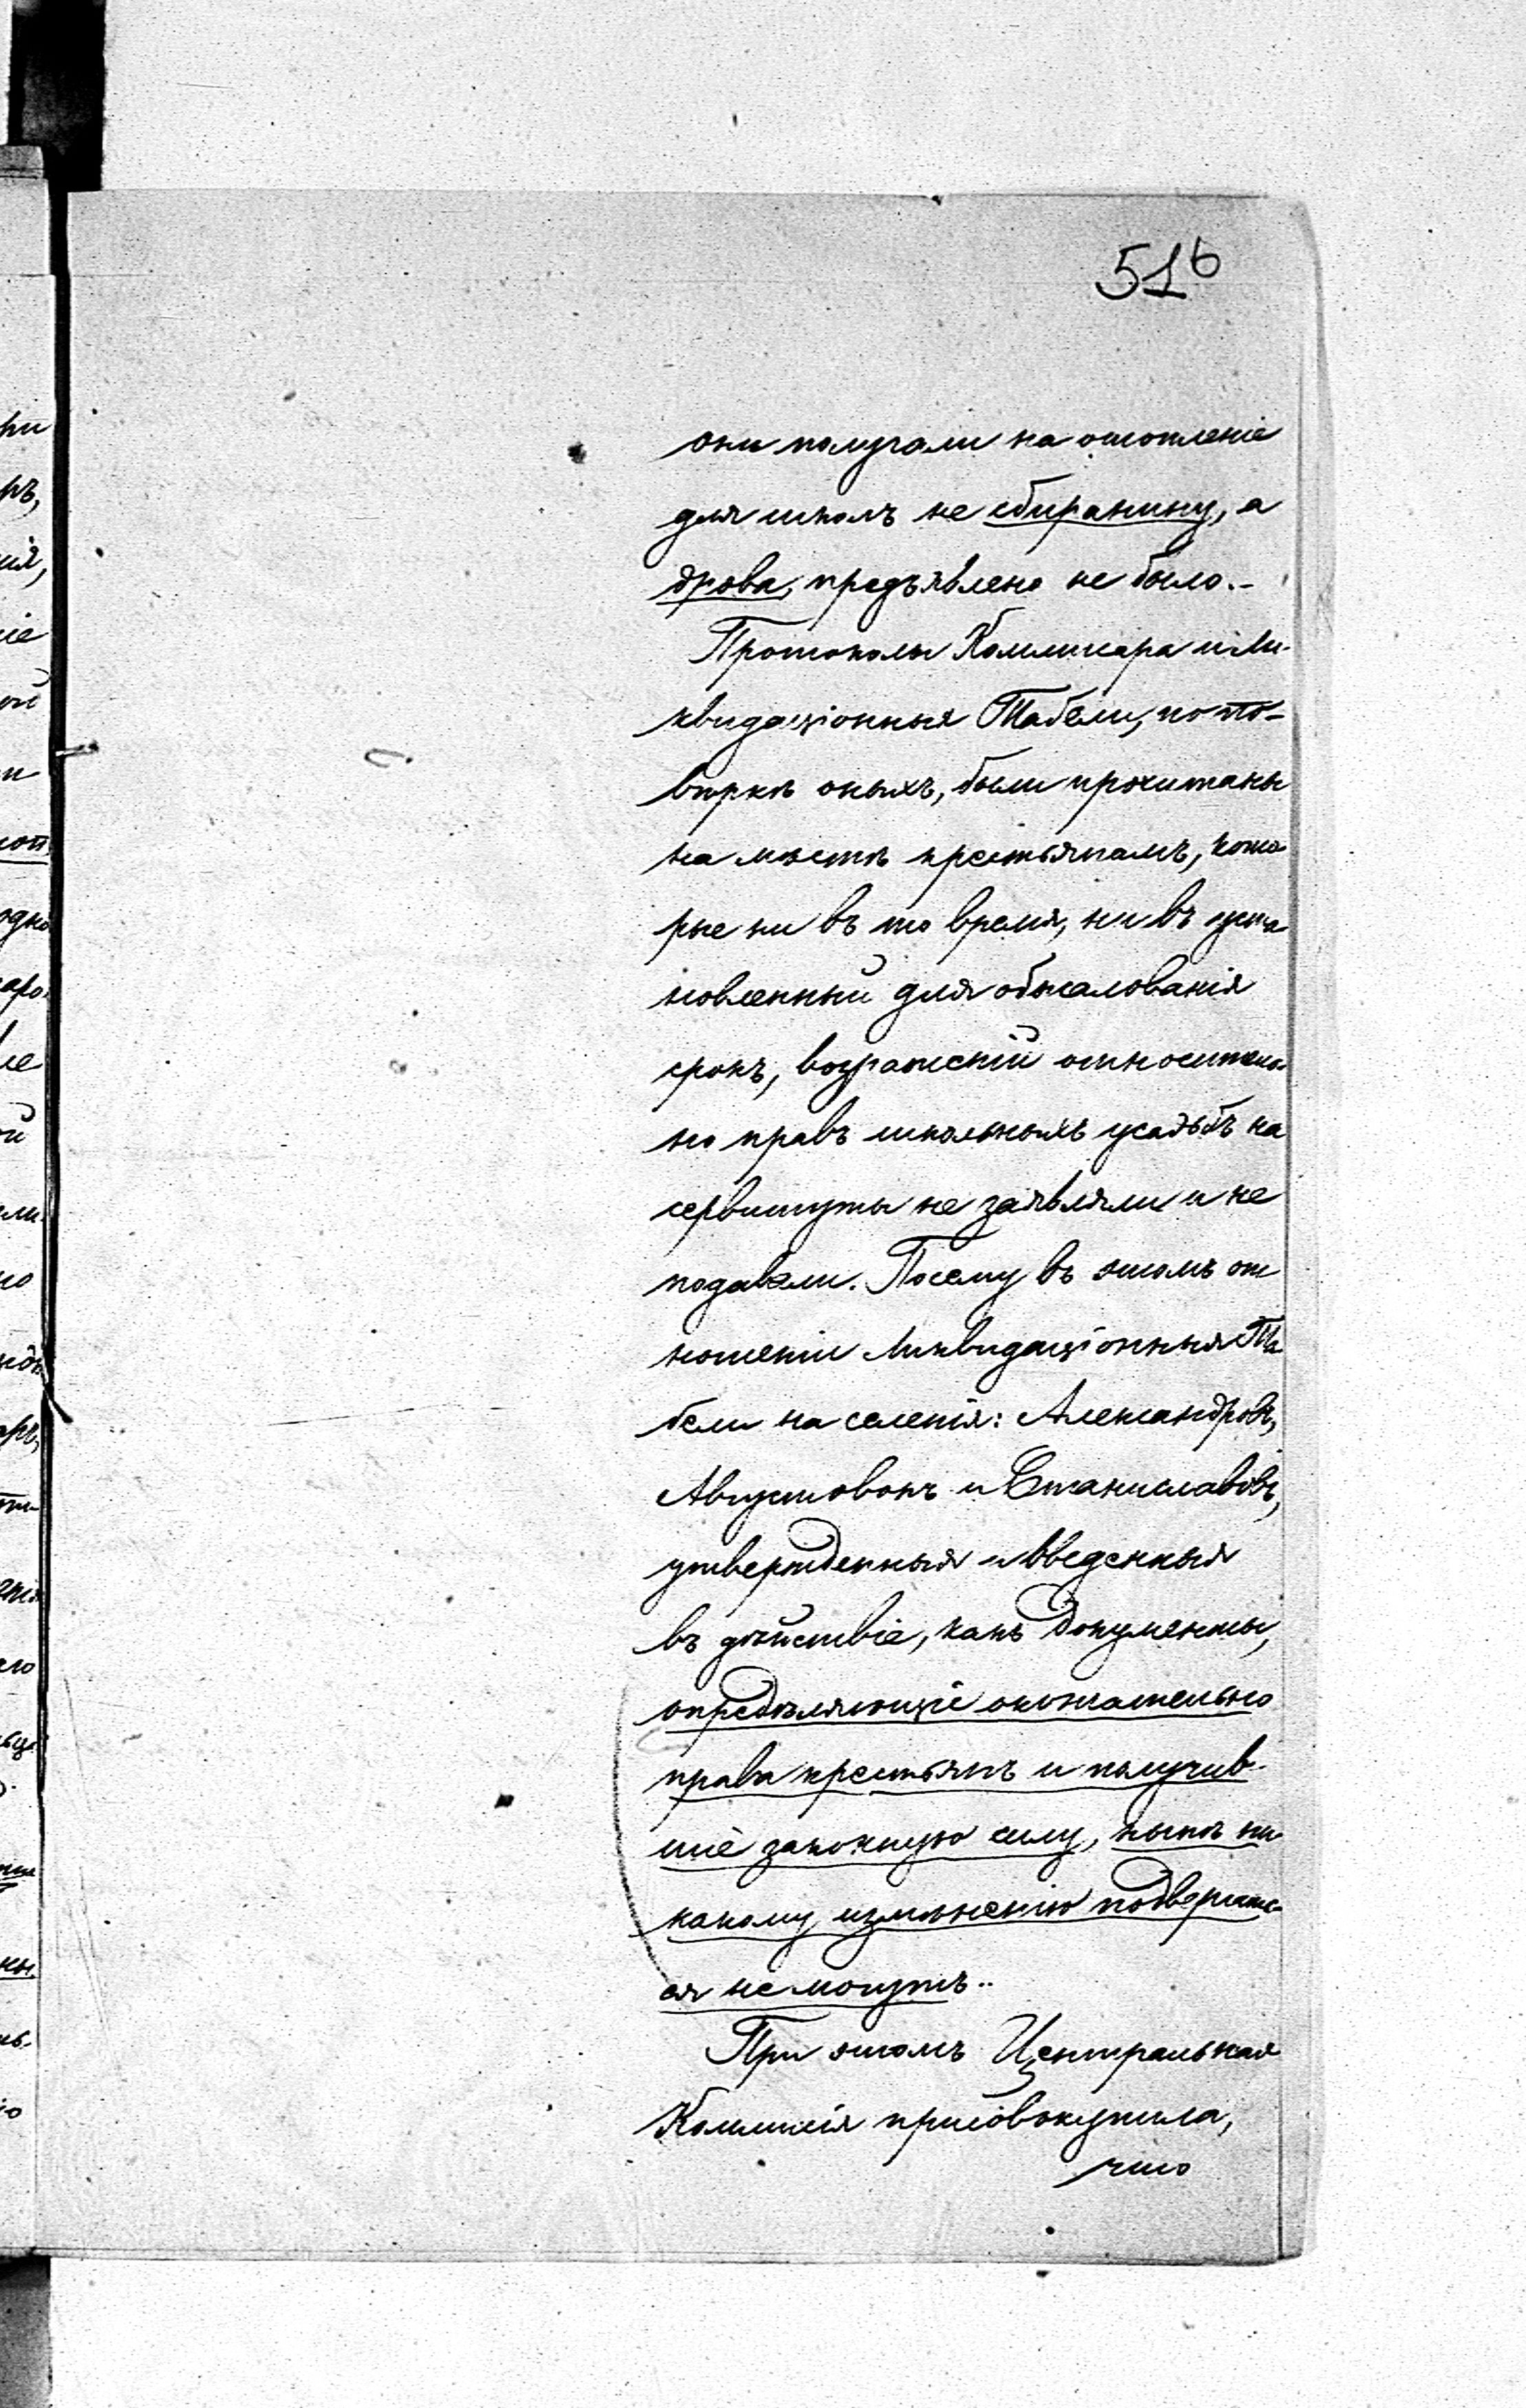 516
они получали на отопленіе
для школъ не сбиранину, а
дрова, предъявлено не было.-
Протоколы Коммисара и Ли-
квидаціонныя Табели, по по-
вѣркѣ оныхъ, были прочитаны
на мѣстѣ крестьянамъ, кото
рые ни въ то время, ни въ уста
новленный для обжалованія
срокъ, возраженій относитель-
но правъ школьныхъ усадьбъ на
сервитуты не заявляли и не
подавали. Посему въ этомъ от
ношеніи Ликвидаціонныя Та
бели на селенія: Александровъ,
Августовекъ и Станиславовъ,
утвержденныя и введенныя
въ дѣйствіе, какъ документы,
опредѣляющіе окончательно
права крестьянъ и получив-
шіе законную силу, нынѣ ни
какому измѣненію подвергать-
ся не могутъ..
При этомъ Центральная
Коммисія присовокупила,
что